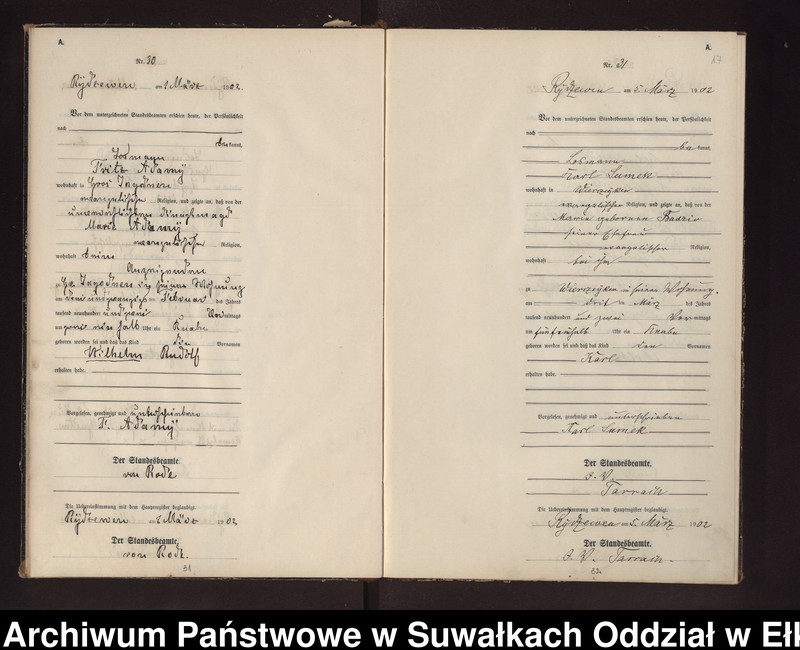 A.
Nr. 30
Rydzewen am 1. März 1902.
Vor dem unterzeichneten Standesbeamten erschien heute, der Persönlichkeit
nach
bekannt,
Losmann
Fritz Adamy
wohnhaft in Gross Jagodnen
evangelischer Religion, und zeigte an, daß von der
unverehelichten Dienstmagd
Marie Adamy
evangelischer Religion,
wohnhaft beim
Anzeigenden
zu Gr. Jagodnen in seiner Wohnung
am Februar des Jahres
tausend neunhundert und zwei Vormittags
um Uhr ein Knabe
geboren worden sei und daß das Kind die Vornamen
Wilhelm Rudolf
erhalten habe.
Vorgelesen, genehmigt und unterschrieben
F. Adamy
Der Standesbeamte.
von Rode
Die Uebereinstimmung mit dem Hauptregister beglaubigt.
Rydzewen am 1. März 1902.
Der Standesbeamte.
von Rode.
31
A.
17
Nr. 31
Rydzewen am 5. März 1902
Vor dem unterzeichneten Standesbeamten erschien heute, der Persönlichkeit
nach
bekannt,
Losmann
Karl Sumek
wohnhaft in Wiersejken
evangelischer Religion, und zeigte an, daß von der
Marie geborenen Badzio
seiner Ehefrau
evangelischer Religion,
wohnhaft bei ihm
zu Wiersejken in seiner Wohnung.
am drei ten März des Jahres
tausend neunhundert und zwei Vormittags
um fünfeinhalb Uhr ein Knabe
geboren worden sei und daß das Kind den Vornamen
Karl
erhalten habe.
Vorgelesen, genehmigt und unterschrieben
Karl Sumek
Der Standesbeamte.
I. V.
Tarrach
Die Uebereinstimmung mit dem Hauptregister beglaubigt.
Rydzewen am 5. März 1902
Der Standesbeamte.
I. V. Tarrach.
32
Archiwum Państwowe w Suwałkach Oddział w Ełk